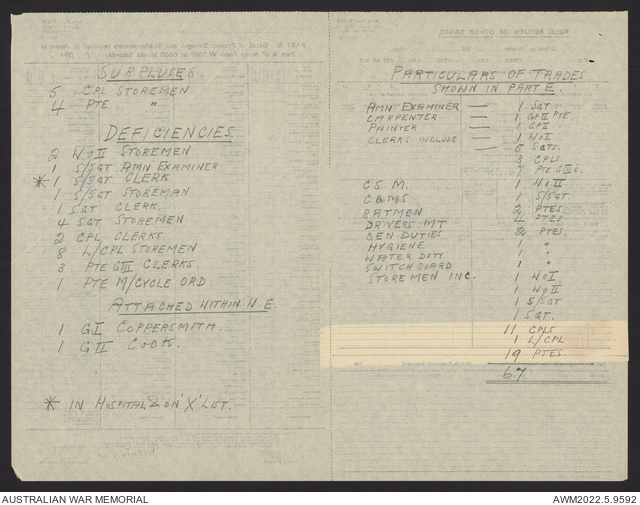 SURPLUSES.
5 CPL STOREMEN
4 PTE "
DEFICIENCIES
2 WOII STOREMEN
1 S/SGT AMN EXAMINER
* 1 S/SGT CLERK
1 S/SGT STOREMAN
1 SGT CLERK.
4 SGT STOREMEN
2 CPL CLERKS.
8 L/CPL STOREMEN
3 PTE GIII CLERKS.
1 PTE M/CYCLE ORD.
ATTACHED WITHIN W.E.
1 GI COPPERSMITH.
1 GII COOK.
* IN HOSPITAL & ON 'X' LIST.
FIELD RETURN OF OTHER RANKS
PARTICULARS OF TRADES
SHOWN IN PART E.
AMN EXAMINER — 1 SGT
CARPENTER — 1 GPII PTE
PAINTER — 1 GPI "
CLERKS INCLUDE — 1 WOI
6 SGTS.
3 CPLS
7 PTE GIIIS.
C.S.M. 1 WOII
CQMS 1 S/SGT
BATMEN 2 PTES.
DRIVERS MT 4 PTES
GEN DUTIES 2 PTES.
HYGIENE 1 "
WATER DUTY 1 "
SWITCHBOARD 1 "
STOREMEN INC. 1 WOI
1 WOII
1 S/SGT
1 SGT.
11 CPLS
1 L/CPL
19 PTES
67
AUSTRALIAN WAR MEMORIAL
AWM2022.5.9592